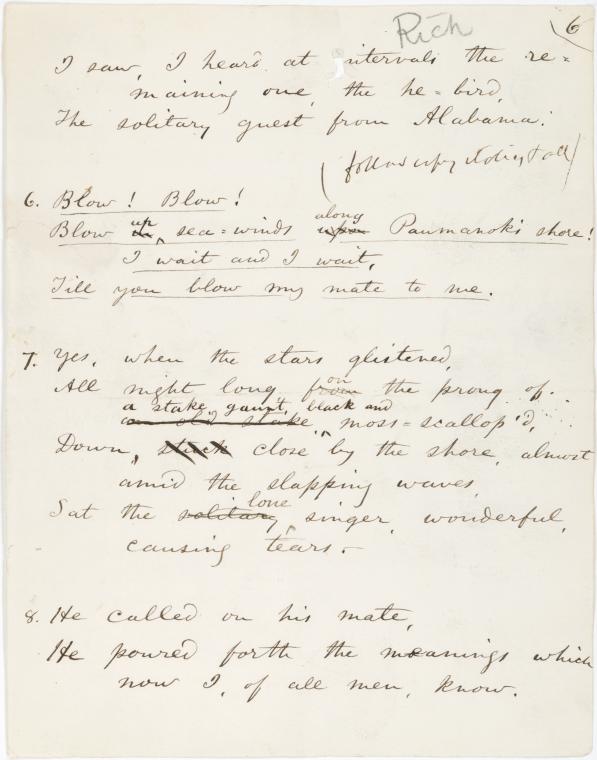 Rich
6
I saw, I heard at intervals the re=
maining one, the he=bird,
The solitary guest from Alabama.
(follow copy
6. Blow! Blow!
up along
Blow in, sea=winds upon Paumanok's shore!
I wait and I wait,
Till you blow my mate to me.
7. Yes, when the stars glistened,
on
All night long from the prong of
a stake, gaunt, black and
an old stake, moss=scallop'd,
Down, stuck close by the shore, almost
amid the slapping waves,
lone
Sat the solitary singer, wonderful,
causing tears.
8. He called on his mate,
He poured forth the meanings which
now I, of all men, know.